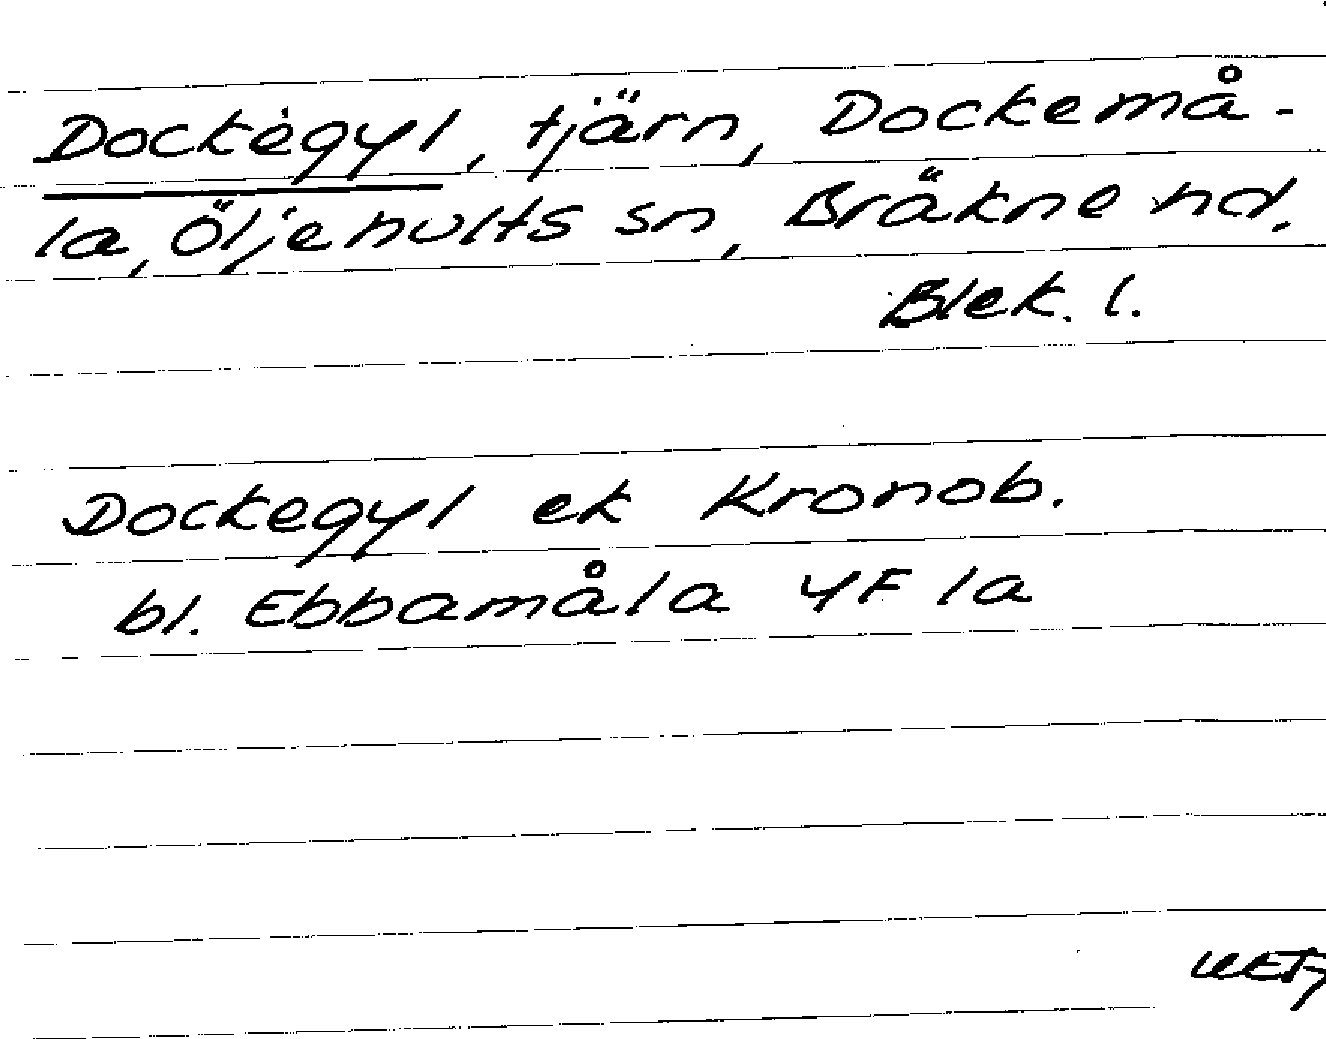 Dockegyl, tjärn, Dockemå-
la, Öljehults sn, Bräkne hd,
Blek. l.
Dockegyl ek Kronob.
bl. Ebbamåla 4F la